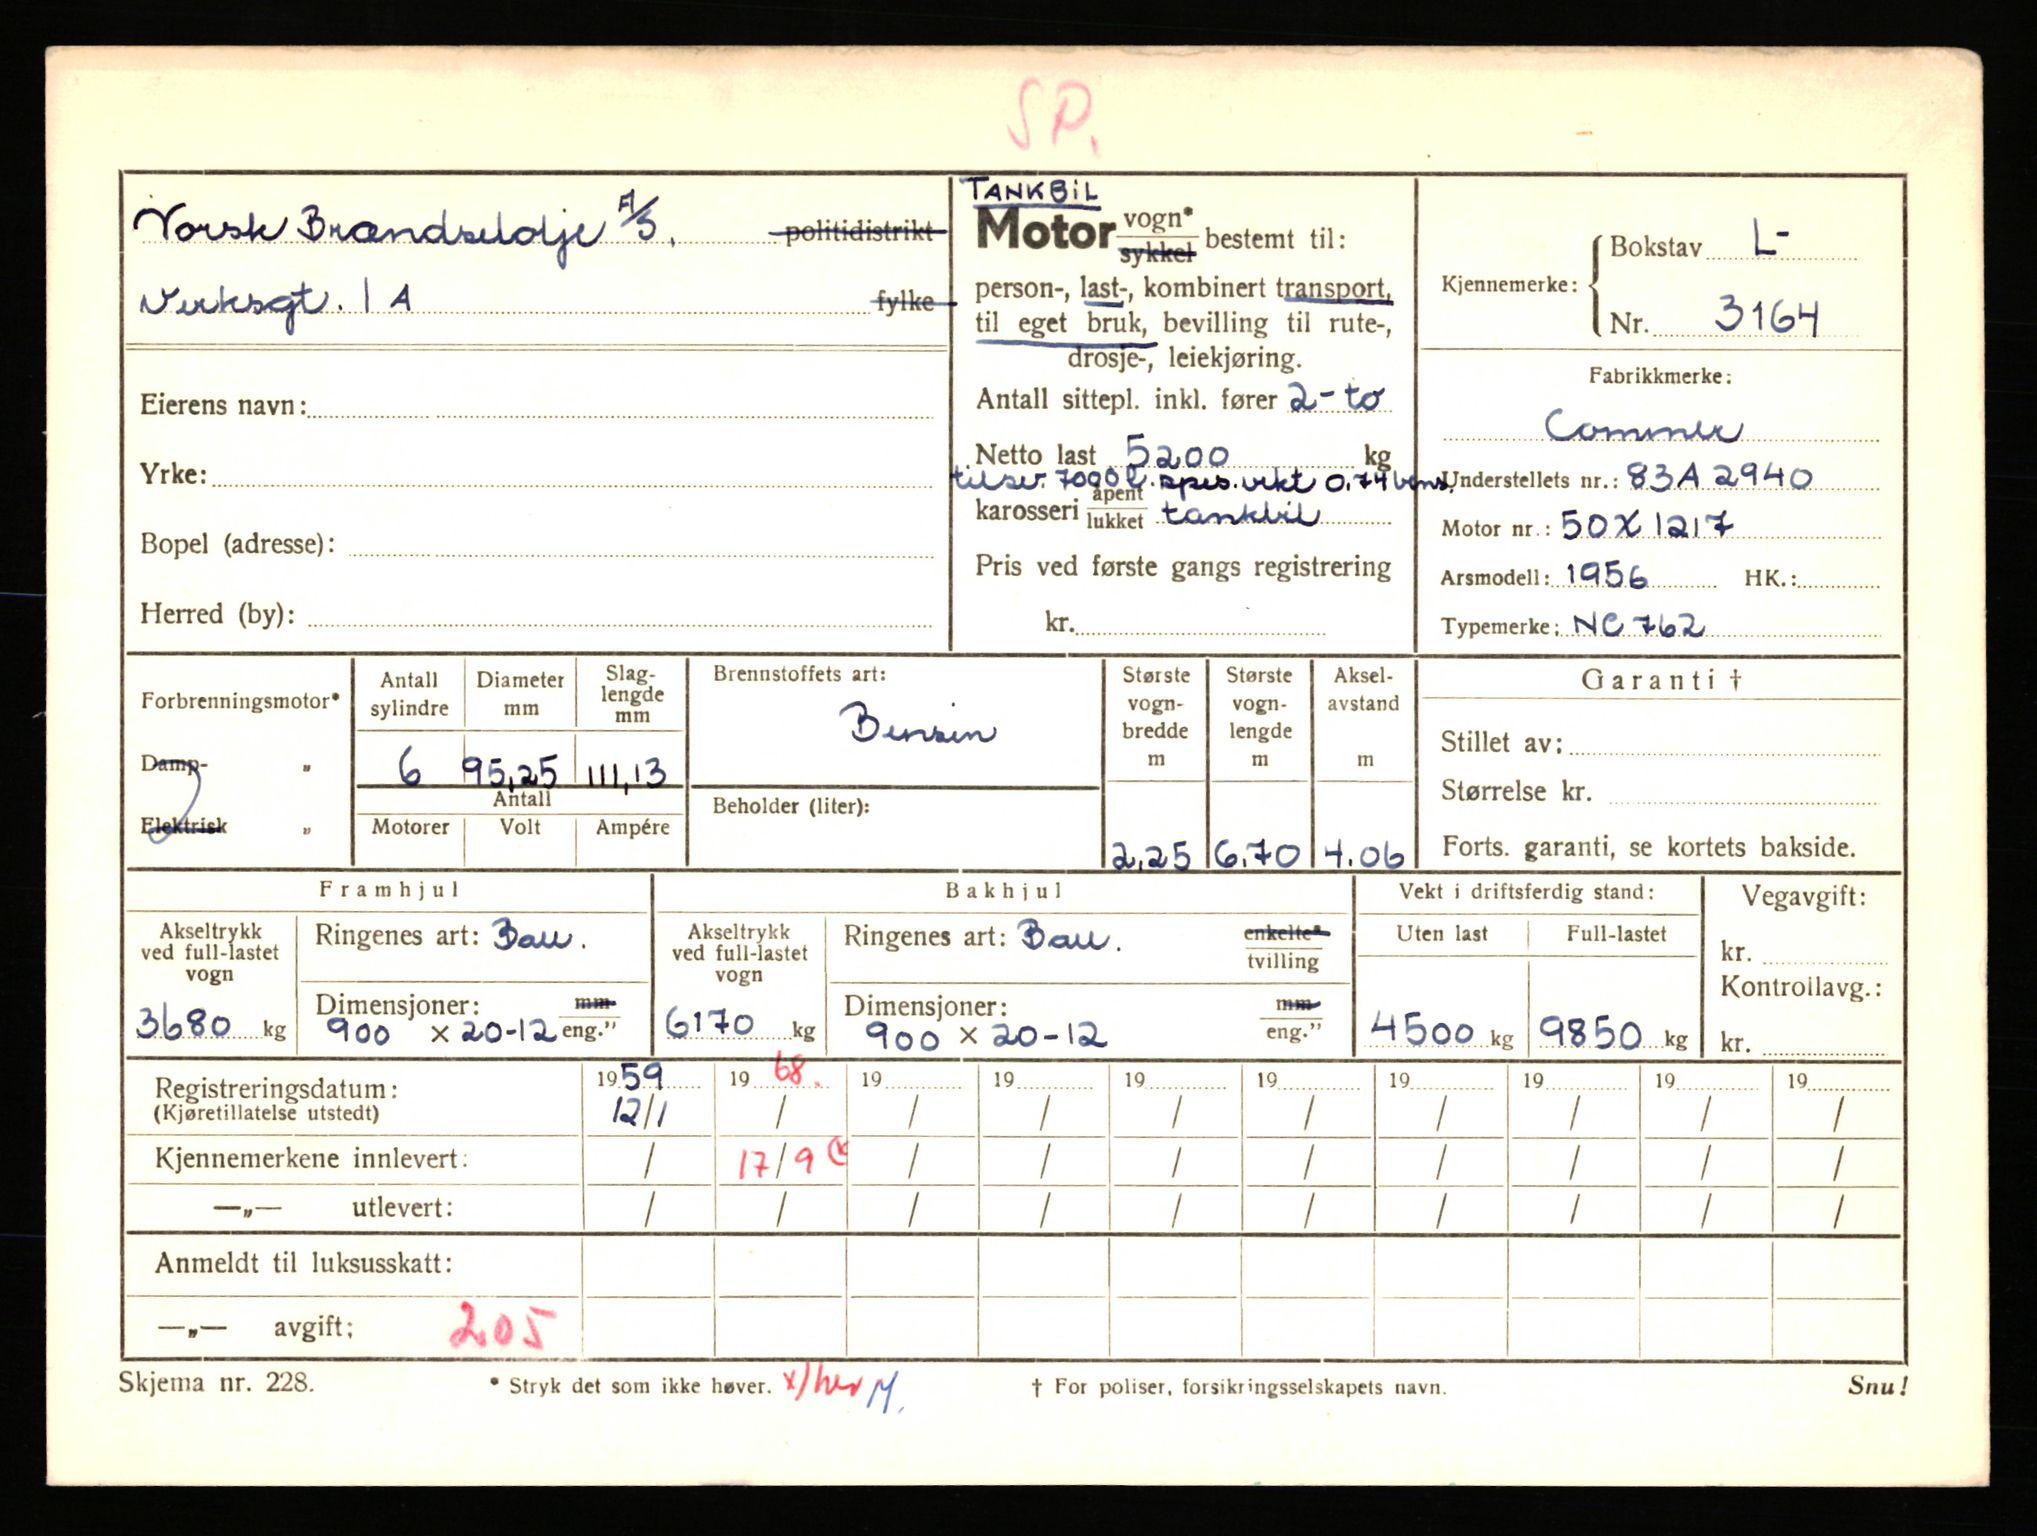 SP.
Norsk Brændselolje A/S. politidistrikt
Verksgt. 1 A fylke
Eierens navn:
Yrke:
Bopel (adresse):
Herred (by):
TANKBIL
Motor vogn* sykkel bestemt til:
person-, last-, kombinert transport,
til eget bruk, bevilling til rute-,
drosje-, leiekjøring.
Antall sittepl. inkl. fører 2-to
Netto last 5200 kg
tilsv. 7000 l. spes. vekt 0.74 bens.
karosseri åpent lukket tankbil
Pris ved første gangs registrering
kr.
Kjennemerke: Bokstav L-
Nr. 3164
Fabrikkmerke:
Commer
Understellets nr.: 83A2940
Motor nr.: 50X1217
Arsmodell: 1956 HK.:
Typemerke: NC762
Forbrenningsmotor*
Damp- „
Elektrisk „
Antall sylindre
Diameter mm
Slag-lengde mm
6 95,25 111,13
Antall
Motorer Volt Ampére
Brennstoffets art:
Bensin
Beholder (liter):
Største vogn-bredde m
Største vogn-lengde m
Aksel-avstand m
2,25 6.70 4.06
Garanti †
Stillet av:
Størrelse kr.
Forts. garanti, se kortets bakside.
Framhjul
Akseltrykk ved full-lastet vogn
3680 kg
Ringenes art: Ball.
Dimensjoner: mm
900 x 20-12 eng."
Bakhjul
Akseltrykk ved full-lastet vogn
6170 kg
Ringenes art: Ball. enkelte* tvilling
Dimensjoner: mm
900 x 20-12 eng."
Vekt i driftsferdig stand:
Uten last Full-lastet
4500 kg 9850 kg
Vegavgift:
kr.
Kontrollavg.:
kr.
Registreringsdatum: 1959 1968. 19 19 19 19 19 19 19 19
(Kjøretillatelse utstedt) 12/1 / / / / / / / / /
Kjennemerkene innlevert: / 17/9 (x / / / / / / / /
—„— utlevert: / / / / / / / / / /
Anmeldt til luksusskatt:
—„— avgift: 205
Skjema nr. 228. * Stryk det som ikke høver. x) her M. † For poliser, forsikringsselskapets navn. Snu!